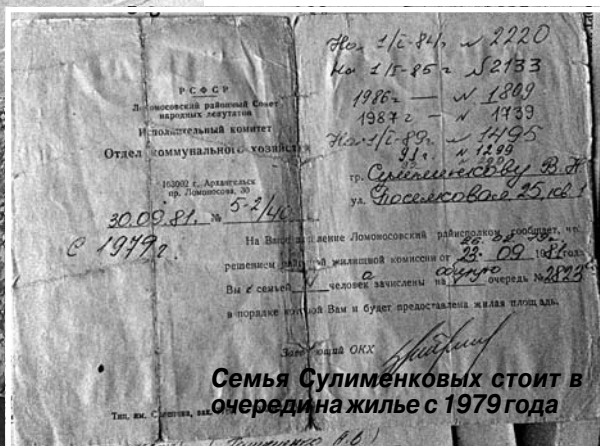 На 1/I-84г. № 2220
На 1/I-85г № 2133
1986г — № 1809
1987г — № 1739
На 1/I-89г. № 1495
91г. № 1299
РСФСР
Ломоносовский районный Совет
народных депутатов
Исполнительный комитет
Отдел коммунального хозяйства
163002 г. Архангельск
пр. Ломоносова, 30
30.09.81. № 5-2/40
С 1979г.
гр. Сулименкову В. Н
ул. Поселковая 25, кв. 1
На Ваше заявление Ломоносовский райисполком сообщает, что
решением районной жилищной комиссии от 23. 09 1981 года
Вы с семьей человек зачислены на общую очередь № 2823
в порядке которой Вам и будет предоставлена жилая площадь.
Заведующий ОКХ
Семья Сулименковых стоит в
очереди на жилье с 1979 года
Тип. им. Склепина, зак.